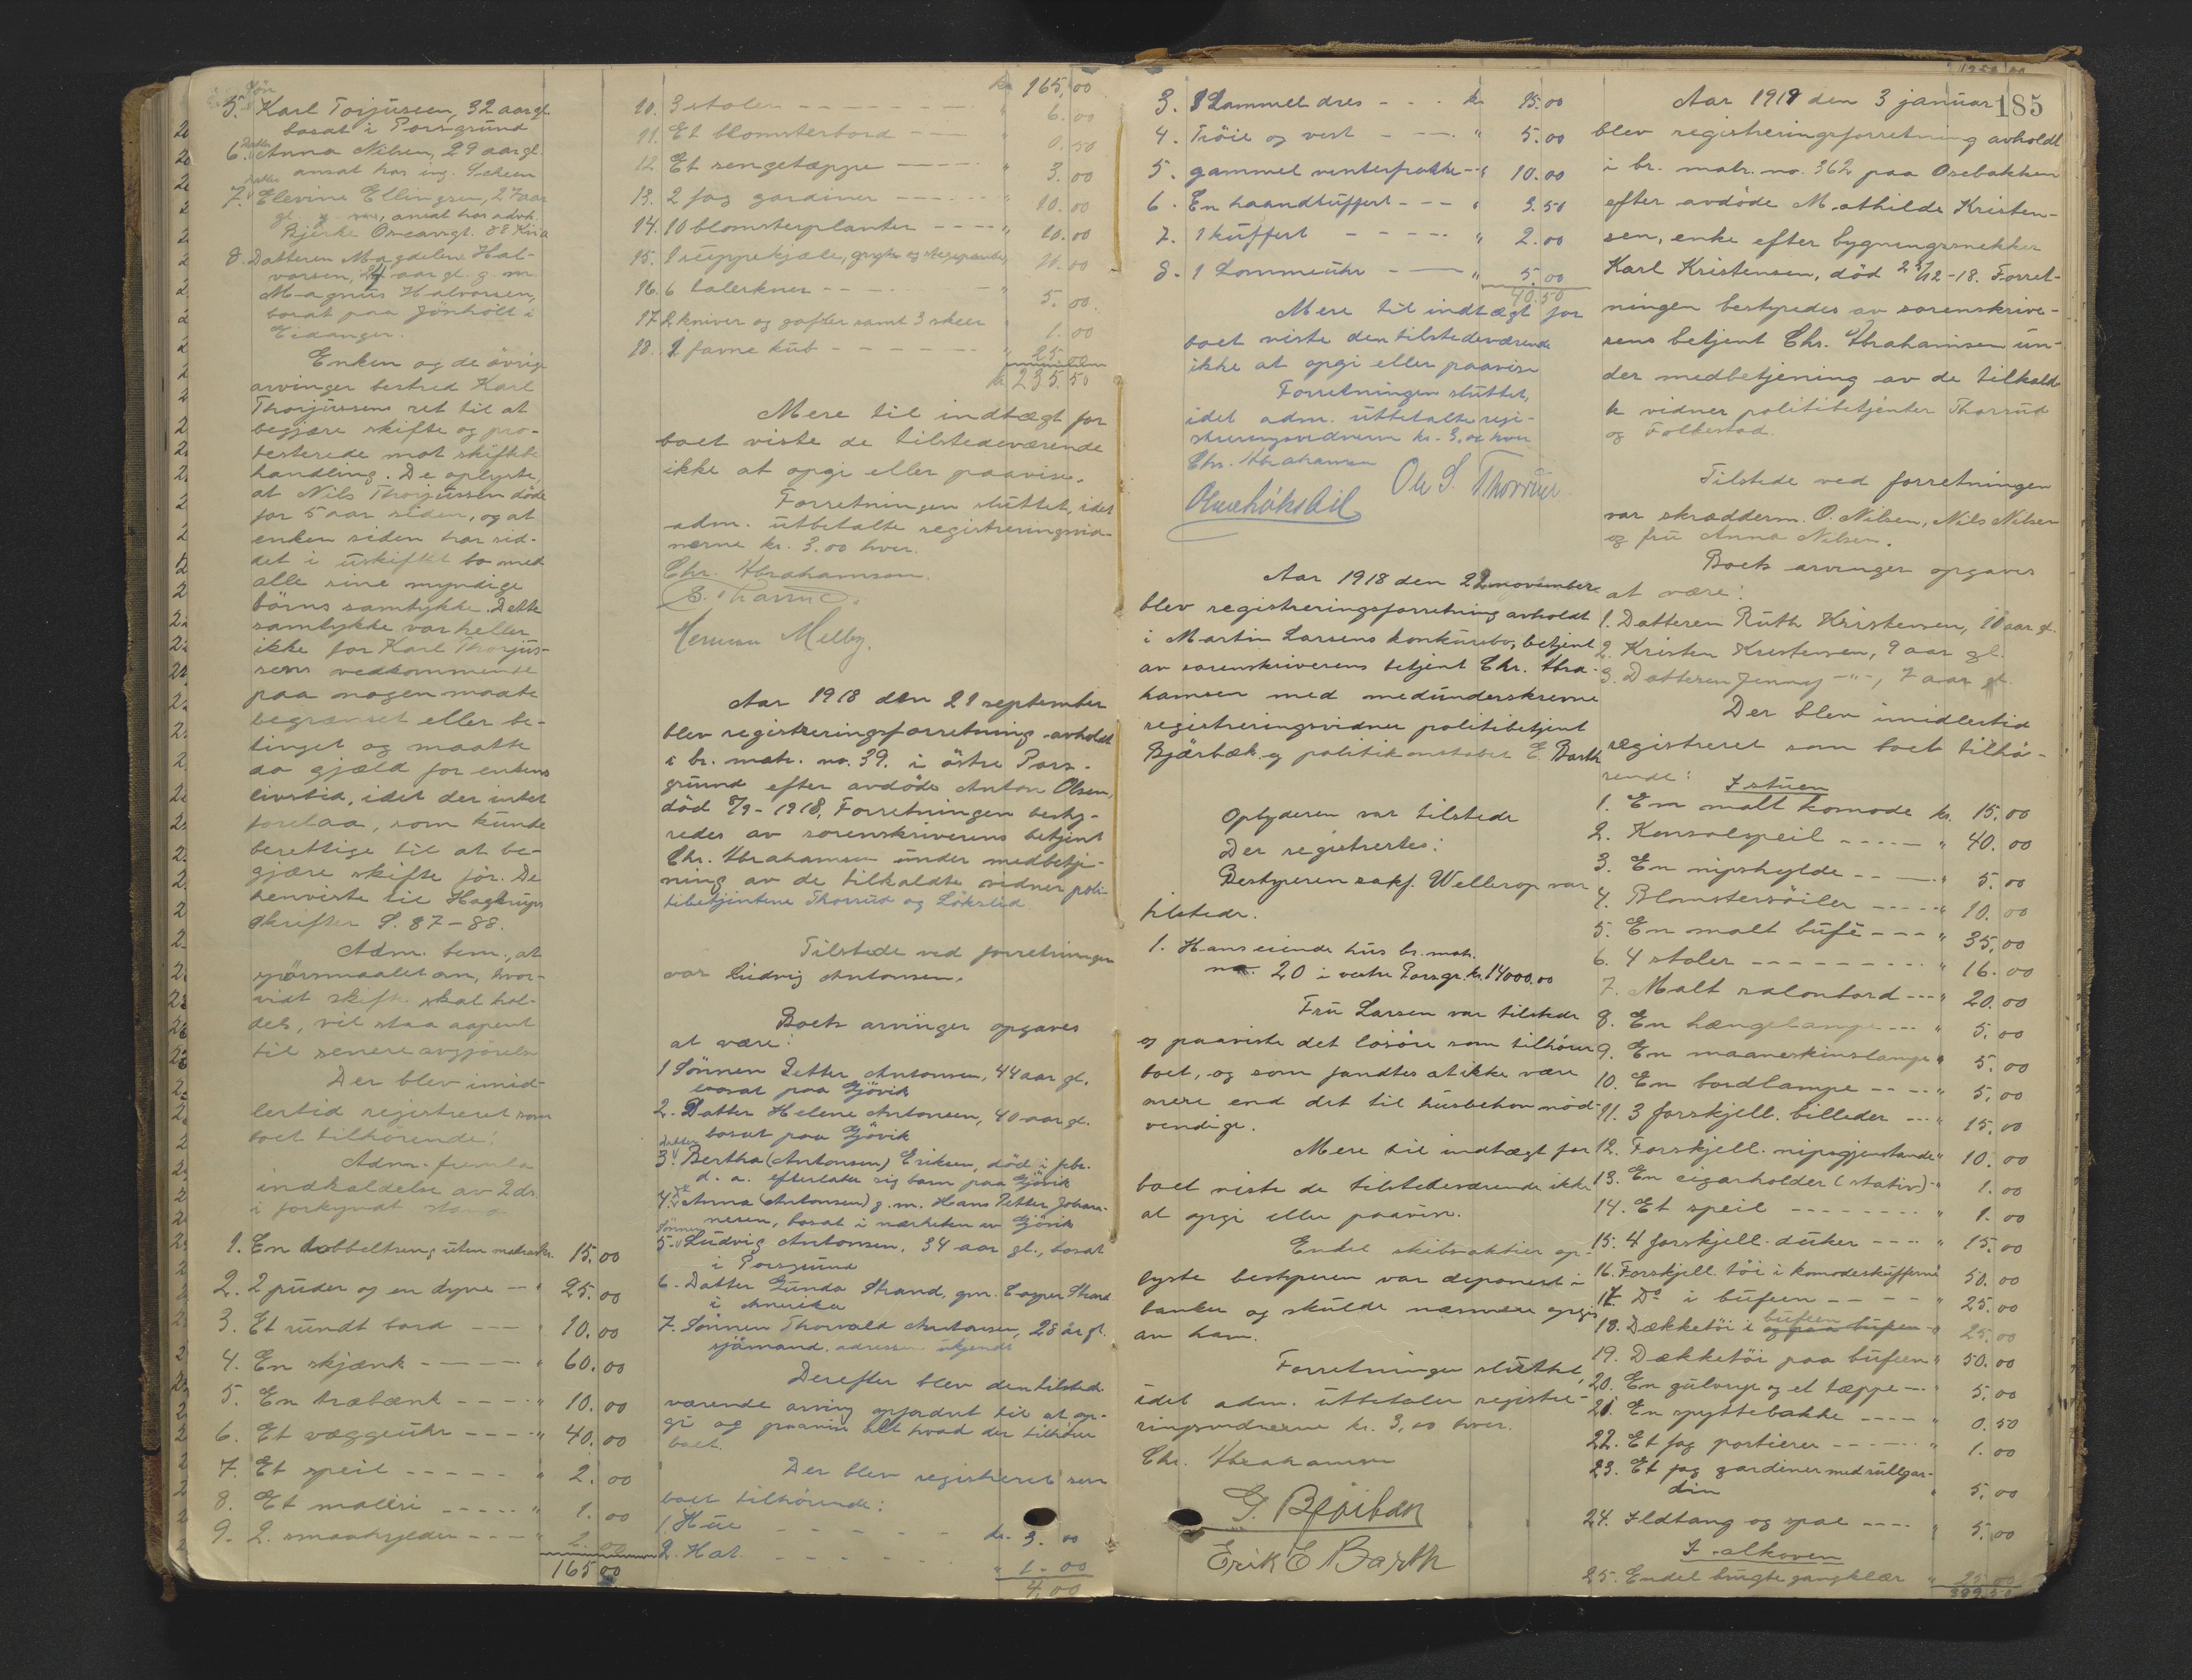 Søn
5. Karl Torjussen, 32 aar gl.
bosat i Porsgrund
Datter
6. Anna Nilsen, 29 aar gl.
ansat hos ing. Scheen
Datter
7. Elevine Ellingsen, 27 aar
gl. ansat hos advk.
Bjerke Oscarsgt. 88 Kria
8. Datteren Magdelene Hal-
vorsen, 24 aar gl. g. m.
Magnus Halvorsen,
bosat paa Jönholt i
Eidanger.
Enken og de övrige
arvinger bestred Karl
Thorjussens ret til at
begjære skifte og pro-
testerede mot skiftebe
handling. De oplyste,
at Nils Thorjussen döde
for 5 aar siden, og at
enken siden har sid-
det i uskiftet bo med
alle sine myndige
börns samtykke. Dette
samtykke var heller
ikke for Karl Thorjus-
sens vedkommende
paa nogen maate
begrænset eller be-
tinget og maatte
da gjæld for enkens
livstid, idet der intet
forelaa, som kunde
berettige til at be-
gjære skifte för. De
henviste til Hagerups
skrifter S. 87-88.
Adm. bem., at
spörsmaalet om, hvor-
vidt skifte skal hol-
des, vil staa aapent
til senere avgjörelse
Der blev imid-
lertid registreret som
boet tilhörende:
Adm. fremla
indkaldelse av 2 ds.
i forkyndt stand
1. En dobbeltseng uten madrasker. 15.00
2. 2 puder og en dyne - " 25.00
3. Et rundt bord - - - " 10.00
4. En skjænk - - - - " 60.00
5. En træbænk - - - - " 10.00
6. Et vægguhr - - - - " 40.00
7. Et speil - - - - - " 2.00
8. Et maleri - - - - - " 1.00
9. 2 smaahylder - - - " 2.00
165 00
kr 165.00
10. 3 stoler - - - - - - - " 6.00
11. Et blomsterbord - - - " 0.50
12. Et sengetæppe - - - - " 3.00
13. 2 fag gardiner - - - - - " 10.00
14. 10 blomsterplanter - - - - " 10.00
15. 1 suppekjele, gryte og stekepande " 11.00
16. 6 talerkner - - - - " 5.00
17. 2 kniver og gafler samt 3 skeer 1.00
18. 1 favne kub - - - - - - " 25.00
kr 235.50
Mere til indtægt for
boet viste de tilstedeværende
ikke at opgi eller paavise.
Forretningen sluttet, idet
adm. utbetalte registreringsvid-
nerne kr. 3.00 hver.
Chr. Abrahamsen.
Herman Melby.
Aar 1918 den 21 september
blev registreringsforretning avholdt
i br. matr. no. 39. i östre Pors-
grund efter avdöde Anton Olsen,
död 8/9-1918. Forretningen besty-
redes av sorenskriverens betjent
Chr. Abrahamsen under medbetje-
ning av de tilkaldte vidner poli-
tibetjentene Thorrud og Lökslid
Tilstede ved forretningen
var Ludvig Antonsen.
Boets arvinger opgaves
at være:
1 Sönnen Petter Antonsen, 44 aar gl.
bosat paa Gjövik
2. Datter Helene Antonsen, 40 aar gl.
bosat paa Gjövik
datter
3. Bertha (Antonsen) Eriksen, död i febr.
d. a. efterlater sig barn paa Gjövik
4. Anna (Antonsen) g. m. Hans Petter Johan-
nesen, bosat i nærheten av Gjövik
Sönnen
5. Ludvig Antonsen, 34 aar gl., bosat
i Porsgrund
6. Datter Gunda Strand, gm. Casper Strand
i Amerika
7. Sönnen Thorvald Antonsen, 28 år gl.
sjömand. adressen ukjendt
Derefter blev den tilstede
værende arving opfordret til at op-
gi og paavise alt hvad der tilhörer
boet.
Der blev registreret som
boet tilhörende:
1. Hue - - - - - - kr. 3.00
2. Hat - - - - - - " 1.00
4.00
3. 1 Gammel dres - - - kr 15.00
4. Tröie og vest - - - " 5.00
5. gammel vinterfrakke - " 10.00
6. En haandkuffert - - - " 3.50
7. 1 kuffert - - - - - " 2.00
8. 1 Lommeuhr - - - " 5.00
40.50
Mere til indtægt for
boet viste den tilstedeværende
ikke at opgi eller paavise
Forretningen sluttet,
idet adm. utbetalte regi-
streringsvidnerne kr. 3,00 hver
Chr. Abrahamsen
Ole S. Thorrud
Aar 1918 den 22 november
blev registreringsforretning avholdt
i Martin Larsens konkursbo, betjent
av sorenskriverens betjent Chr. Abra-
hamsen med medunderskrevne
registreringsvidner politibetjent
Bjørbæk og politikonstabel E. Barth
Optyderen var tilstede
Der registrertes:
Bestyreren sakf. Wellerop var
tilstede.
1. Hans eiende hus br. matr.
no. 20 i vestre Porsgr. kr. 14000.00
Fru Larsen var tilstede
og paaviste det lösöre som tilhörer
boet, og som fandtes at ikke være
mere end det til husbehov nöd-
vendige.
Mere til indtægt for
boet viste de tilstedeværende ikke
at opgi eller paavise.
Endel skibsaktier op-
lyste bestyreren var deponert i
banker og skulde nærmere opgis
av ham.
Forretningen sluttet,
idet adm. utbetaler registre-
ringsvidnerne kr. 3,00 hver.
Chr. Abrahamsen
G. Bjørbæk
Erik E Barth
185
Aar 1919 den 3 januar
blev registreringsforretning avholdt
i br. matr. no. 362 paa Osebakken
efter avdöde Mathilde Kristen-
sen, enke efter bygningssnekker
Karl Kristensen, död 23/12-18. Forret-
ningen bestyredes av sorenskrive-
rens betjent Chr. Abrahamsen un-
der medbetjening av de tilkald-
te vidner politibetjenter Thorrud
og Folkestad.
Tilstede ved forretningen
var skrædderm. O. Nilsen, Nils Nilsen
og fru Anna Nilsen.
Boets arvinger opgaves
at være:
1. Datteren Ruth Kristensen, 10 aar gl.
2. Kristen Kristensen, 9 aar gl.
3. Datteren Jenny -"-, 7 aar gl.
Der blev imidlertid
registreret som boet tilhö-
rende:
I stuen
1. En malt komode kr. 15.00
2. Konsolspeil - - - - - " 40.00
3. En nipshylde - - - - " 5.00
4. Blomstersöiler - - - - " 10.00
5. En malt bufé - - - " 35.00
6. 4 stoler - - - - - - - - - " 16.00
7. Malt salonbord - - - " 20.00
8. En hængelampe - - - " 5.00
9. En maaneskinslampe " 5.00
10. En bordlampe - - - - " 5.00
11. 3 forskjell. billeder - - - " 15.00
12. Forskjell. nipsgjenstande " 10.00
13. En cigarholder (stativ) - " 1.00
14. Et speil - - - - - - - - " 1.00
15. 4 forskjell. duker - - - - " 15.00
16. Forskjell. töi i komodeskufferne 50.00
17. Do i bufeen - - - - - " 25.00
bufeen
18. Dækketöi i og paa bufeen " 25.00
19. Dækketöi paa bufeen " 50.00
20. En gulvrye og et tæppe - " 5.00
21. En spyttebakke - - - - " 0.50
22. Et fag portierer - - - - - " 1.00
23. Et fag gardiner med rullgar-
din " 5.00
24. Ildtang og spae - - - - " 5.00
I alkoven
25. Endel brugte gangklær " 25.00
389.50